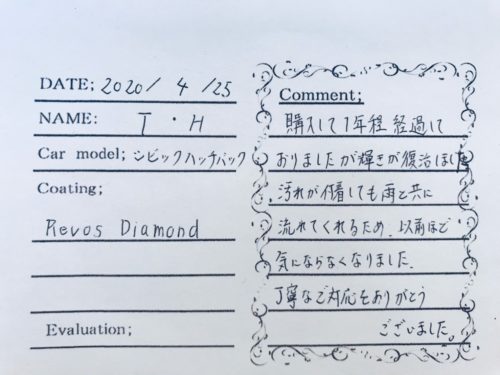 DATE; 2020/ 4 /25
NAME: T・H
Car model; シビックハッチバック
Coating;
Revos Diamond
Evaluation;
Comment;
購入して1年程経過して
おりましたが輝きが復活しました
汚れが付着しても雨と共に
流れてくれるため、以前ほど
気にならなくなりました。
丁寧なご対応をありがとう
ございました。